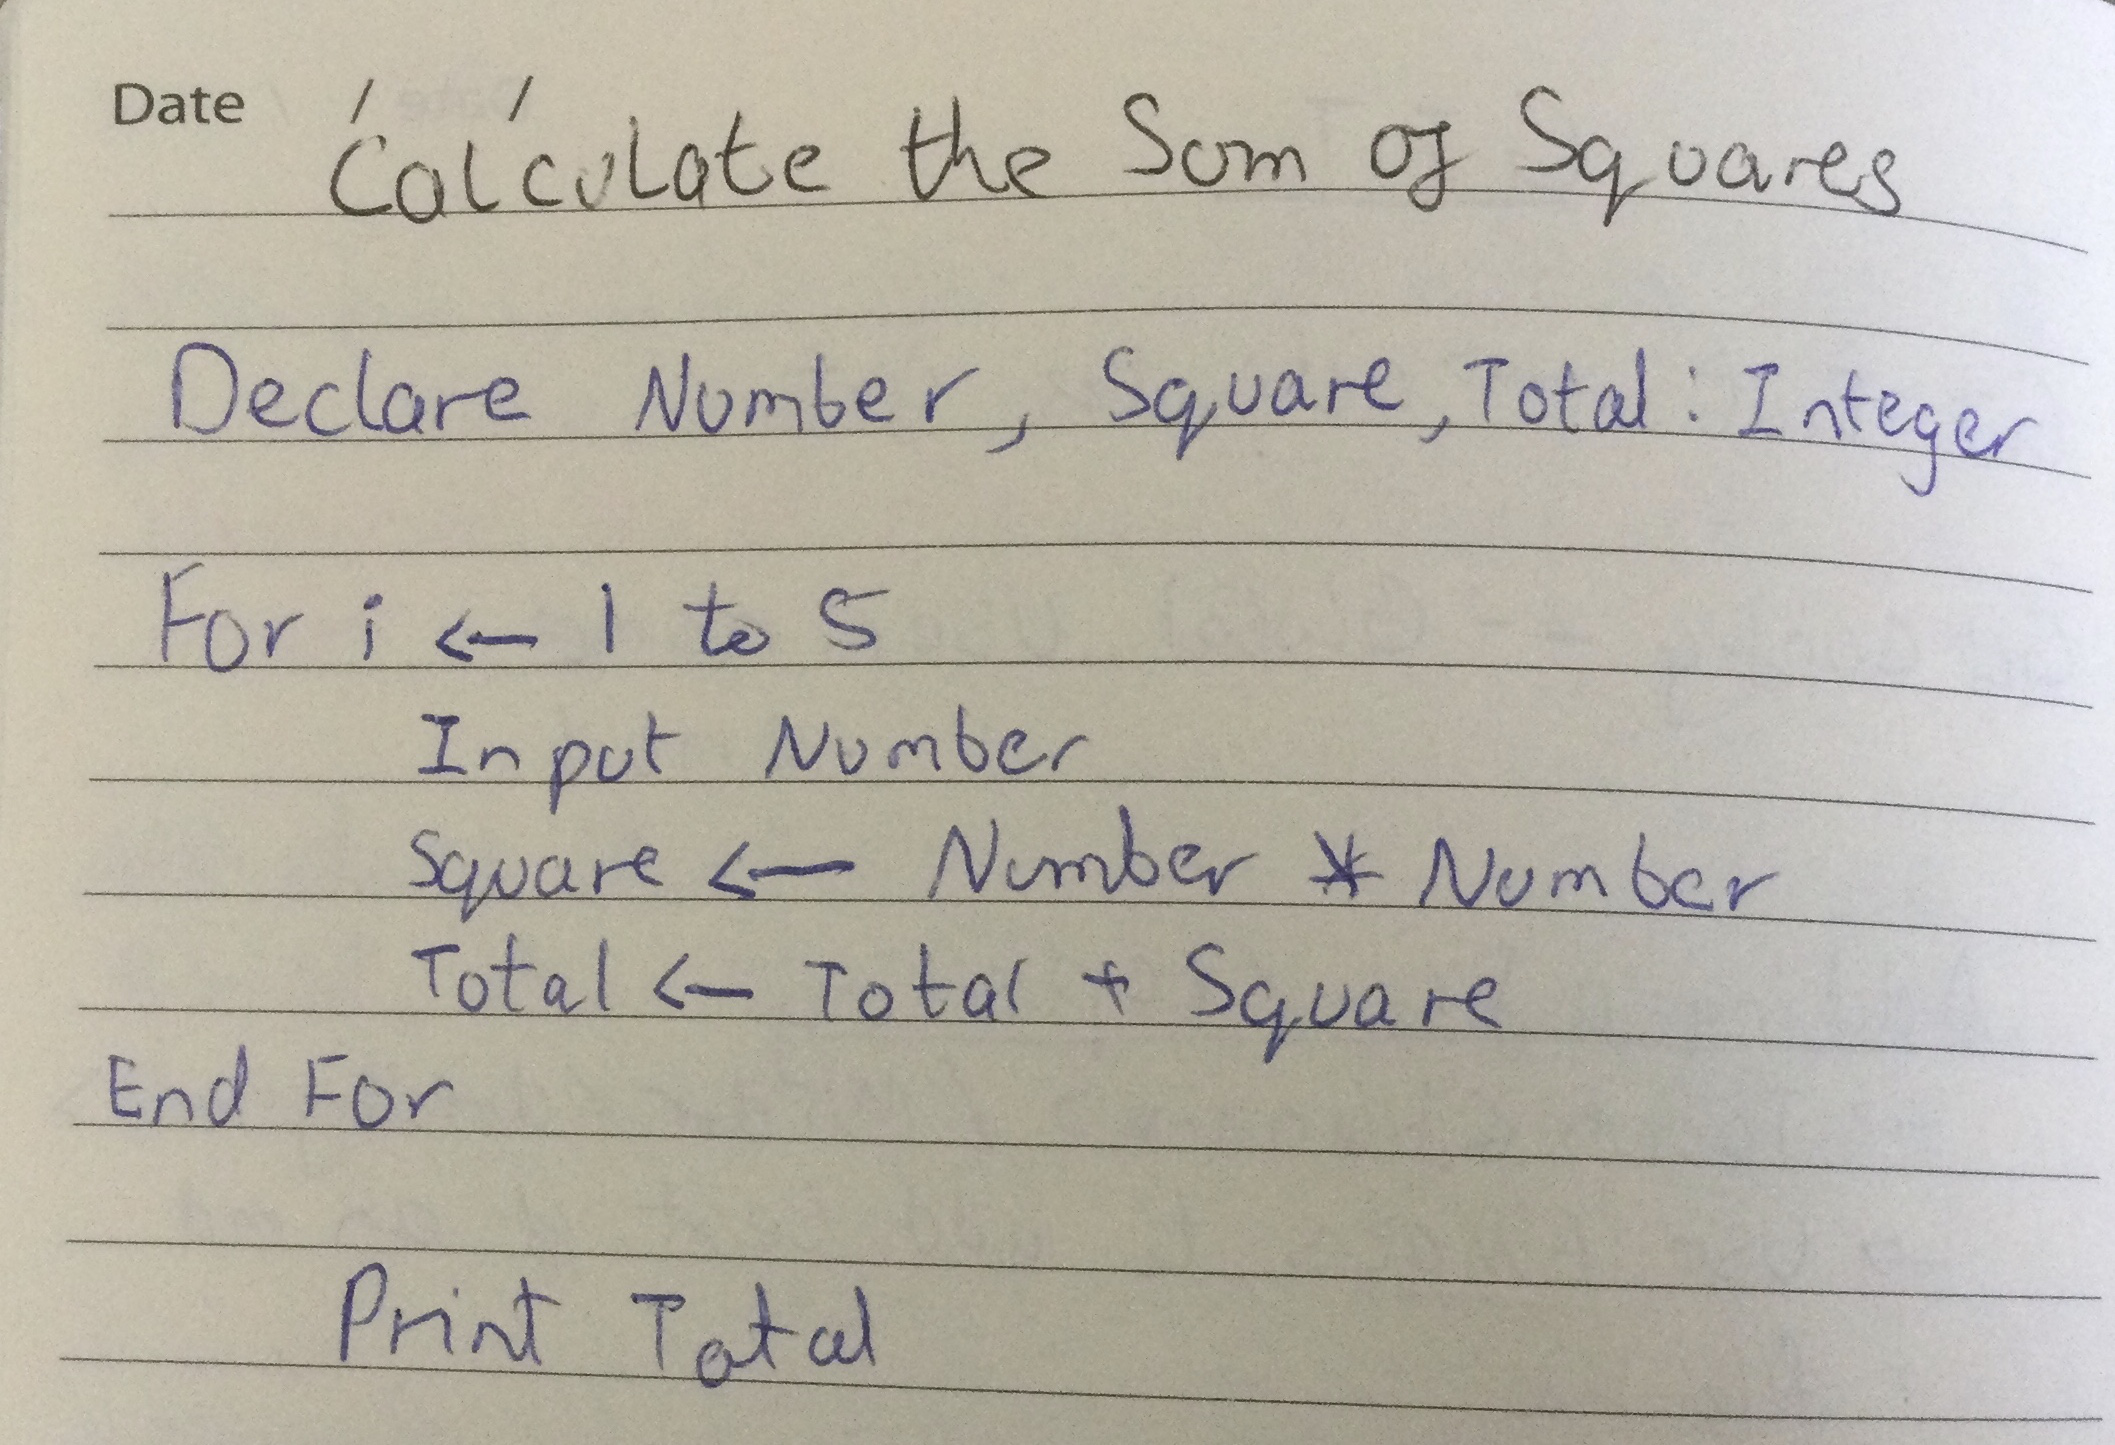 Date / /
Calculate the Sum of Squares
Declare Number, Square, Total : Integer
For i ← 1 to 5
Input Number
Square ← Number * Number
Total ← Total + Square
End For
Print Total